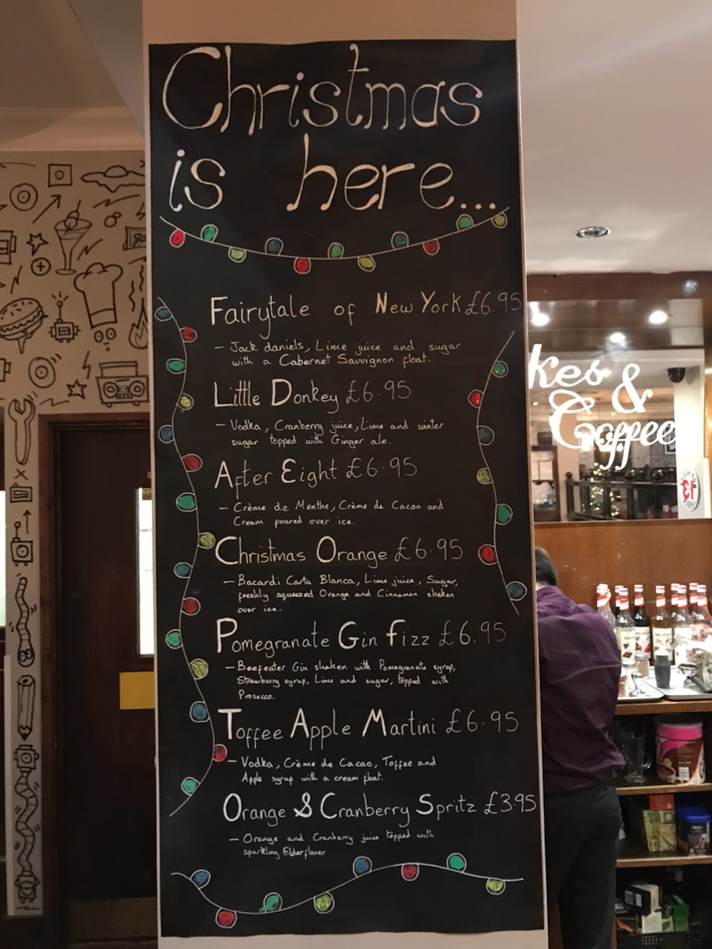 Christmas
is here...
Fairytale of New York £6.95
- Jack daniels, Lime juice and sugar
with a Cabernet Sauvignon float.
Little Donkey £6.95
- Vodka, Cranberry juice, Lime and winter
sugar topped with Ginger ale.
After Eight £6.95
- Crème de Menthe, Crème de Cacao and
Cream poured over ice.
Christmas Orange £6.95
- Bacardi Carta Blanca, Lime juice, Sugar,
freshly squeezed Orange and Cinnamon shaken
over ice.
Pomegranate Gin Fizz £6.95
- Beefeater Gin shaken with Pomegranate syrup,
Strawberry syrup, Lime and sugar, topped with
Prosecco.
Toffee Apple Martini £6.95
- Vodka, Crème de Cacao, Toffee and
Apple syrup with a cream float.
Orange & Cranberry Spritz £3.95
- Orange and Cranberry juice topped with
sparkling Elderflower
kes &
Coffee